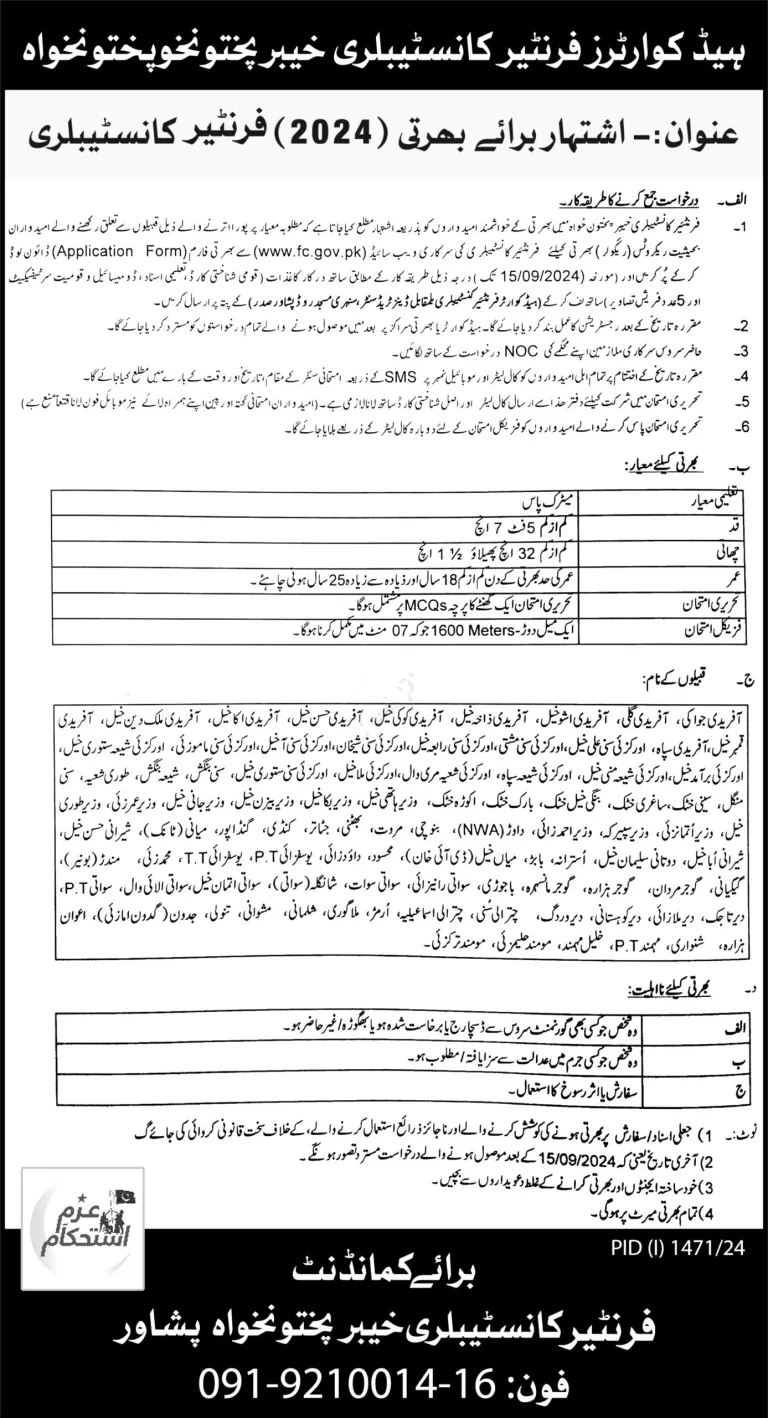 ہیڈ کوارٹرز فرنٹیر کانسٹیبلری خیبر پختونخو پختونخواہ
عنوان:- اشتہار برائے بھرتی (2024) فرنٹیر کانسٹیبلری
الف۔ درخواست جمع کرنے کا طریقہ کار۔
1- فرنٹیر کانسٹیبلری خیبر پختون خواہ میں بھرتی کے خواہشمند امیدواروں کو بذریعہ اشتہار مطلع کیا جاتا ہے کہ مطلوبہ معیار پر پورا اترنے والے ذیل قبیلوں سے تعلق رکھنے والے امیدواران
بحیثیت ریکروٹس (ریگولر) بھرتی کیلئے فرنٹیر کانسٹیبلری کی سرکاری ویب سائیڈ (www.fc.gov.pk) سے بھرتی فارم (Application Form) ڈائون لوڈ
کرکے پُر کریں اور (مورخہ 15/09/2024 تک) درجہ ذیل طریقہ کار کے مطابق ساتھ درکار کاغذات (قومی شناختی کارڈ، تعلیمی اسناد، ڈومیسائیل و قومیت سرٹیفیکیٹ
اور 5 عدد فریش تصاویر) ساتھ لف کرکے (ہیڈ کوارٹر فرنٹیر کنسٹیبلری بلمقابل ڈینز ٹریڈ سنٹر، سنہری مسجد روڈ پشاور صدر) کے پتہ پر ارسال کریں۔
2- مقررہ تاریخ کے بعد رجسٹریشن کا عمل بند کردیا جائے گا۔ ہیڈ کوارٹر یا بھرتی مراکز پر بعد میں موصول ہونے والے تمام درخواستوں کو مسترد کر دیا جائے گا۔
3- حاضر سروس سرکاری ملازمین اپنے محکمے کی NOC درخواست کے ساتھ لگائیں۔
4- مقررہ تاریخ کے اختتام پر تمام اہل امیدواروں کو کال لیٹر اور موبائیل نمبر پر SMS کے ذریعہ امتحانی سنٹر کے مقام، تاریخ اور وقت کے بارے میں مطلع کیا جائے گا۔
5- تحریری امتحان میں شرکت کیلئے دفتر ھذا سے ارسال کال لیٹر اور اصل شناختی کارڈ ساتھ لانا لازمی ہے۔ (امیدواران امتحانی گتہ اور پین اپنے ہمراہ لائے نیز موبائل فون لانا قطعاً منع ہے)
6- تحریری امتحان پاس کرنے والے امیدواروں کو فزیکل امتحان کے لئے دوبارہ کال لیٹر کے ذریعے بلایا جائے گا۔
ب۔ بھرتی کیلئے معیار:
تعلیمی معیار میٹرک پاس
قد کم از کم 5 فٹ 7 انچ
چھاتی کم از کم 32 انچ پھیلاؤ 1 ½ انچ
عمر عمر کی حد بھرتی کے دن کم از کم 18 سال اور ذیادہ سے زیادہ 25 سال ہونی چاہئے۔
تحریری امتحان تحریری امتحان ایک گھنٹے کا پرچہ MCQs پر مشتمل ہوگا۔
فزیکل امتحان ایک میل دوڑ-1600 Meters جو کہ 07 منٹ میں مکمل کرنا ہوگا۔
ج۔ قبیلوں کے نام:
آفریدی جواکی، آفریدی گلی، آفریدی اشوخیل، آفریدی ذاخہ خیل، آفریدی کوکی خیل، آفریدی حسن خیل، آفریدی اکاخیل، آفریدی ملک دین خیل، آفریدی
قمبر خیل، آفریدی سپاہ، اورکزئی سنی علی خیل، اورکزئی سنی مشتی، اورکزئی سنی رابعہ خیل، اورکزئی سنی شیخان، اورکزئی سنی آخیل، اورکزئی سنی ماموزئی، اورکزئی شیعہ ستوری خیل،
اورکزئی برآمد خیل، اورکزئی شیعہ منی خیل، اورکزئی شیعہ سپاہ، اورکزئی شعیہ مری وال، اورکزئی ملاخیل، اورکزئی سنی ستوری خیل، سنی بنگش، شیعہ بنگش، طوری شعیہ، سنی
منگل، سینی خٹک، ساغری خٹک، بنگی خیل خٹک، بارک خٹک، اکوڑہ خٹک، وزیر ہاتھی خیل، وزیر بکا خیل، وزیر بیزن خیل، وزیر جانی خیل، وزیر عمرزئی، وزیر طوری
خیل، وزیر اُتمانزئی، وزیر سپیرکہ، وزیر احمد زائی، داوڑ (NWA)، بنوچی، مروت، بھٹنی، جٹاتر، کنڈی، گنڈاپور، میانی (ٹانک)، شیرانی حسن خیل،
شیرانی اُباخیل، دوتانی سلیمان خیل، اُسترانہ، بابڑ، میاں خیل (ڈی آئی خان)، محسود، داؤدزائی، یوسفزائی P.T، یوسفزائی T.T، محمدزئی، مندڑ (بونیر)،
گیگیانی، گوجر مردان، گوجر ہزارہ، گوجر مانسہرہ، باجوڑی، سواتی رانیزائی، سواتی سوات، شانگلہ (سواتی)، سواتی اتمان خیل، سواتی الائی وال، سواتی P.T،
دیر تاجک، دیر ملازائی، دیر کوہستانی، دیر وردگ، چترالی سُنی، چترالی اسماعیلیہ، اُرمڑ، ملاگوری، شلمانی، مشوانی، تنولی، جدون (گدون امازئی)، اعوان
ہزارہ، شنواری، مہمند P.T، خلیل مہمند، مومند حلیمزئی، مومند ترکزئی۔
د۔ بھرتی کیلئے نااہلیت:
الف وہ شخص جو کسی بھی گورنمنٹ سروس سے ڈسچارج یا برخاست شدہ ہو یا بھگوڑہ/غیر حاضر ہو۔
ب وہ شخص جو کسی جرم میں عدالت سے سزا یافتہ/مطلوب ہو۔
ج سفارش یا اثر رسوخ کا استعمال۔
نوٹ:۔ 1) جعلی اسناد/سفارش پر بھرتی ہونے کی کوشش کرنے والے اور ناجائز ذرائع استعمال کرنے والے، کے خلاف سخت قانونی کروائی کی جائے گ
2) آخری تاریخ یعنی کہ 15/09/2024 کے بعد موصول ہونے والے درخواست مسترد تصور ہونگے۔
3) خود ساختہ ایجنٹوں اور بھرتی کرانے کے غلط دعویداروں سے بچیں۔
4) تمام بھرتی میرٹ پر ہوگی۔
عزم
استحکام
PID (I) 1471/24
برائے کمانڈنٹ
فرنٹیر کانسٹیبلری خیبر پختونخواہ پشاور
فون: 091-9210014-16